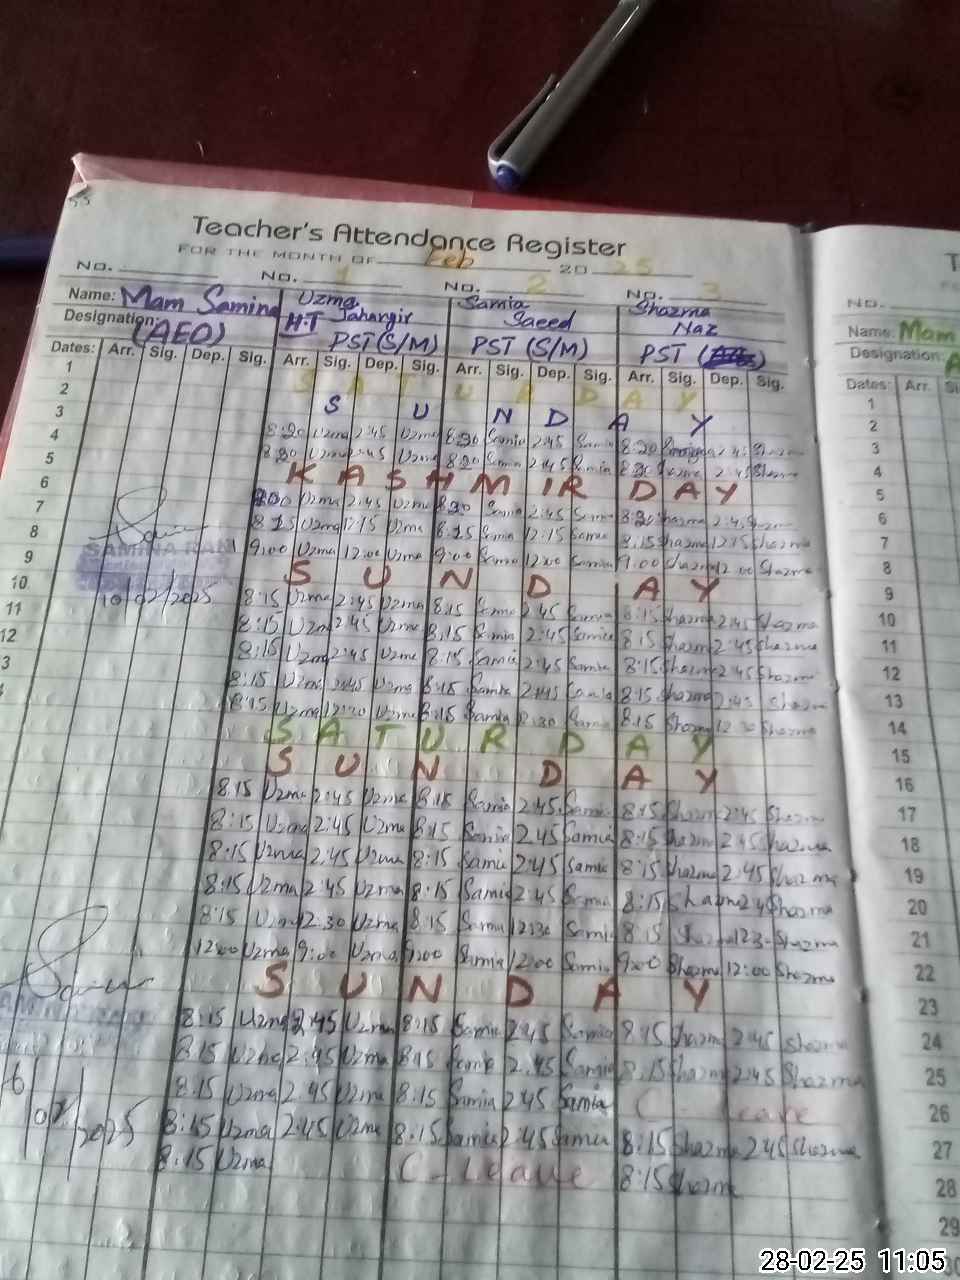 Teacher's Attendance Register
FOR THE MONTH OF Feb 20 25
No. No. 1 No. 2 No. 3
Name: Mam Samina Uzma Jahangir Samia Saeed Shazma Naz
Designation: (AEO) H.T PST (S/M) PST (S/M) PST
Dates: Arr. Sig. Dep. Sig. Arr. Sig. Dep. Sig. Arr. Sig. Dep. Sig. Arr. Sig. Dep. Sig.
1 SATURDAY
2 SUNDAY
3 8:20 Uzma 2:45 Uzma 8:20 Samia 2:45 Samia 8:20 2:45 Shazma
4 8:20 Uzma 2:45 Uzma 8:20 Samia 2:45 Samia 8:20 Shazma 2:45 Shazma
5 KASHMIR DAY
6 Uzma 2:45 Uzma 8:20 Samia 2:45 Samia 8:20 Shazma 2:45 Shazma
7 8:15 Uzma 12:15 Uzma 8:15 Samia 12:15 Samia 8:15 Shazma 12:15 Shazma
8 9:00 Uzma 12:00 Uzma 9:00 Samia 12:00 Samia 9:00 Shazma 12:00 Shazma
SAMINA RANI
9 SUNDAY
10 10/02/2025 8:15 Uzma 2:45 Uzma 8:15 Samia 2:45 Samia 8:15 Shazma 2:45 Shazma
11 8:15 Uzma 2:45 Uzma 8:15 Samia 2:45 Samia 8:15 Shazma 2:45 Shazma
12 8:15 Uzma 2:45 Uzma 8:15 Samia 2:45 Samia 8:15 Shazma 2:45 Shazma
3 8:15 Uzma 2:45 Uzma 8:15 Samia 2:45 Samia 8:15 Shazma 2:45 Shazma
8:15 Uzma Uzma 8:15 Samia Samia 8:15 Shazma 12:30 Shazma
SATURDAY
SUNDAY
8:15 Uzma 2:45 Uzma 8:15 Samia 2:45 Samia 8:15 Shazma 2:45 Shazma
8:15 Uzma 2:45 Uzma 8:15 Samia 2:45 Samia 8:15 Shazma 2:45 Shazma
8:15 Uzma 2:45 Uzma 8:15 Samia 2:45 Samia 8:15 Shazma 2:45 Shazma
8:15 Uzma 2:45 Uzma 8:15 Samia 2:45 Samia 8:15 Shazma 2:45 Shazma
8:15 Uzma 12:30 Uzma 8:15 Samia 12:30 Samia 8:15 Shazma Shazma
12:00 Uzma 9:00 Uzma 9:00 Samia 12:00 Samia 9:00 Shazma 12:00 Shazma
SUNDAY
8:15 Uzma 2:45 Uzma 8:15 Samia 2:45 Samia 8:15 Shazma 2:45 Shazma
8:15 Uzma 2:45 Uzma 8:15 Samia 2:45 Samia 8:15 Shazma 2:45 Shazma
8:15 Uzma 2:45 Uzma 8:15 Samia 2:45 Samia C-Leave
8:15 Uzma 2:45 Uzma 8:15 Samia 2:45 Samia 8:15 Shazma 2:45 Shazma
8:15 Uzma C-Leave 8:15 Shazma
No.
Name: Mam
Designation: A
Dates: Arr. S
1
2
3
4
5
6
7
8
9
10
11
12
13
14
15
16
17
18
19
20
21
22
23
24
25
26
27
28
29
28-02-25 11:05